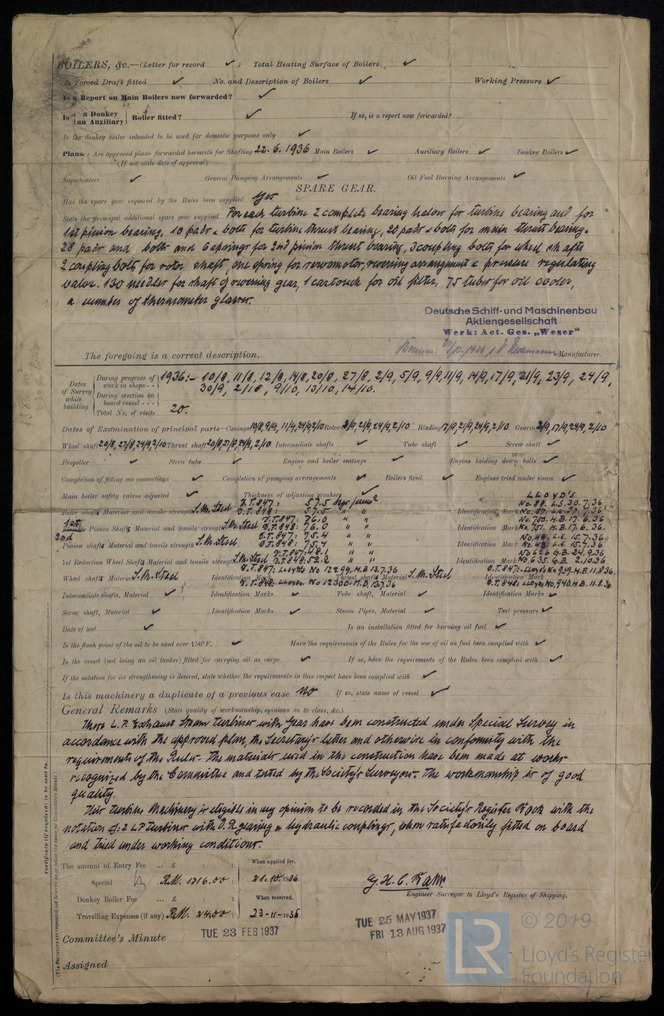 BOILERS, &c.—(Letter for record ✓ ) Total Heating Surface of Boilers ✓
Is Forced Draft fitted ✓ No. and Description of Boilers ✓ Working Pressure ✓
Is a Report on Main Boilers now forwarded? ✓
Is { a Donkey / an Auxiliary } Boiler fitted? ✓ If so, is a report now forwarded?
Is the donkey boiler intended to be used for domestic purposes only ✓
Plans. Are approved plans forwarded herewith for Shafting 22.6.1936 Main Boilers ✓ Auxiliary Boilers ✓ Donkey Boilers ✓
(If not state date of approval)
Superheaters ✓ General Pumping Arrangements ✓ Oil Fuel Burning Arrangements ✓
SPARE GEAR.
Has the spare gear required by the Rules been supplied Yes
State the principal additional spare gear supplied For each turbine 2 complete bearing halves for turbine bearing and for
1st pinion bearing, 10 pads & bolts for turbine thrust bearing, 20 pads & bolts for main thrust bearing.
28 pads and bolts and 6 springs for 2nd pinion thrust bearing, 3 coupling bolts for wheel shafts
2 coupling bolts for rotor shaft, one spring for servomotor, reversing arrangement & pressure regulating
valve. 130 needles for shaft of reversing gear, 1 cartouch for oil filter, 75 tubes for oil cooler,
a number of thermometer glasses.
Deutsche Schiff- und Maschinenbau
Aktiengesellschaft
Werk: Act. Ges. „Weser"
The foregoing is a correct description, Bremen Manufacturer.
Dates of Survey while building
During progress of work in shops - - 1936:- 10/8, 11/8, 12/8, 14/8, 20/8, 27/8, 2/9, 5/9, 9/9, 11/9, 14/9, 17/9, 21/9, 23/9, 24/9,
During erection on board vessel - - - 30/9, 2/10, 9/10, 13/10, 14/10.
Total No. of visits 20.
Dates of Examination of principal parts—Casings Rotors Blading 17/9, 2/9, 24/9, 2/10 Gearing
Wheel shaft 20/8, 27/8, 24/9, 2/10 Thrust shaft Intermediate shafts ✓ Tube shaft ✓ Screw shaft ✓
Propeller ✓ Stern tube ✓ Engine and boiler seatings ✓ Engine holding down bolts ✓
Completion of fitting sea connections ✓ Completion of pumping arrangements ✓ Boilers fixed ✓ Engines tried under steam ✓
Main boiler safety valves adjusted ✓ Thickness of adjusting washers ✓
LLOYD'S
Rotor shaft, Material and tensile strength S.M. Steel O.T.847: 57.5 Identification Mark No 88. L.S. 30.7.36
1st Pinion Shaft, Material and tensile strength S.M. Steel O.T.847: 76.0 Identification Mark No. 750. H.B. 17.6.36
2nd
Pinion shaft, Material and tensile strength S.M. Steel O.T.847: 75.4 Identification Mark
O.T.848: 75.4
1st Reduction Wheel Shaft, Material and tensile strength S.M. Steel Identification Mark No 626 G.B. 24.9.36
No 635. G.B. 2.10.36
Wheel shaft, Material S.M. Steel Identification Mark O.T.847: Lloyds No 12299. H.B. 12.7.36 Thrust shaft, Material S.M. Steel Identification Mark O.T.847: Lloyds No 939. H.B. 11.8.36
O.T.848. Lloyds No 12300. H.B. 13.7.36 O.T.848. Lloyds No. 940. H.B. 11.8.36
Intermediate shafts, Material ✓ Identification Marks ✓ Tube shaft, Material ✓ Identification Marks ✓
Screw shaft, Material ✓ Identification Marks ✓ Steam Pipes, Material ✓ Test pressure ✓
Date of test ✓ Is an installation fitted for burning oil fuel ✓
Is the flash point of the oil to be used over 150°F. ✓ Have the requirements of the Rules for the use of oil as fuel been complied with ✓
Is the vessel (not being an oil tanker) fitted for carrying oil as cargo ✓ If so, have the requirements of the Rules been complied with ✓
If the notation for ice strengthening is desired, state whether the requirements in this respect have been complied with ✓
Is this machinery a duplicate of a previous case No If so, state name of vessel ✓
General Remarks (State quality of workmanship, opinions as to class, &c.)
These L.P. Exhaust Steam Turbines with Gear have been constructed under Special Survey in
accordance with the approved plan, the Secretary's letter and otherwise in conformity with the
requirements of the Rules. The materials used in the construction have been made at works
recognized by the Committee and tested by the Society's Surveyors. The workmanship is of good
quality.
This turbine Machinery is eligible in my opinion to be recorded in the Society's Register Book with the
notation of: 2 LP turbines with D.R. gearing & hydraulic couplings, when satisfactorily fitted on board
and tried under working conditions.
The amount of Entry Fee ... £ : : When applied for,
Special ... £ R.M. 1216.00 : 21.10.1936
Donkey Boiler Fee ... £ : : When received,
Travelling Expenses (if any) £ R.M. 24.00 : 23-11-1936
Engineer Surveyor to Lloyd's Register of Shipping.
Committee's Minute TUE 23 FEB 1937
TUE 25 MAY 1937
FRI 13 AUG 1937
Assigned
LR
© 2019
Lloyd's Register
Foundation